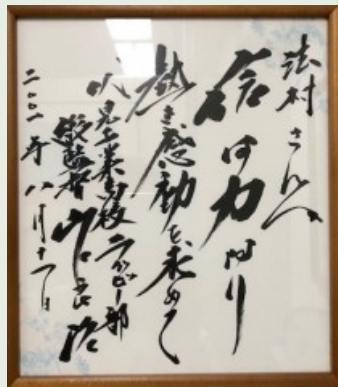 法村さんへ
信は力なり
熱き感動を求めて
伏見工業高校ラグビー部
総監督 山口良治
二〇〇一年八月十一日